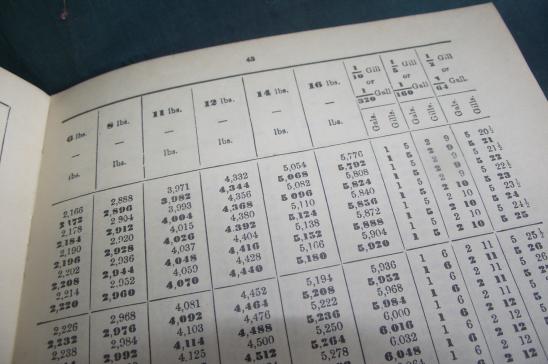 43
6 lbs. — lbs. | 8 lbs. — lbs. | 11 lbs. — lbs. | 12 lbs. — lbs. | 14 lbs. — lbs. | 16 lbs. — lbs. | 1/10 Gill or 1/320 Gall. | 1/5 Gill or 1/160 Gall. | 1/2 Gill or 1/64 Gall.
Gals. Gills. Gals. Gills. Gals. Gills.
2,166 2,888 3,971 4,332 5,054 5,776 1 5 2 9 5 20½
2,172 2,896 3,982 4,344 5,068 5,792 1 5 2 9 5 21
2,178 2,904 3,993 4,356 5,082 5,808 1 5 2 9 5 21½
2,184 2,912 4,004 4,368 5,096 5,824 1 5 2 9 5 22
2,190 2,920 4,015 4,380 5,110 5,840 1 5 2 9 5 22½
2,196 2,928 4,026 4,392 5,124 5,856 1 5 2 10 5 23
2,202 2,936 4,037 4,404 5,138 5,872 1 5 2 10 5 23½
2,208 2,944 4,048 4,416 5,152 5,888 1 5 2 10 5 24
2,214 2,952 4,059 4,428 5,166 5,904 1 5 2 10 5 24½
2,220 2,960 4,070 4,440 5,180 5,920 1 5 2 10 5 25
2,226 2,968 4,081 4,452 5,194 5,936 1 6 2 11 5 25½
2,232 2,976 4,092 4,464 5,208 5,952 1 6 2 11 5 26
2,238 2,984 4,103 4,476 5,222 5,968 1 6 2 11 5
2,992 4,114 4,488 5,236 5,984 1 6 2 11 5
4,125 4,500 5,250 6,000 1 6 2 11
4,512 5,264 6,016 1 6 2 12
5,278 6,032 1 6 2 12
6,048 1 6 2 12